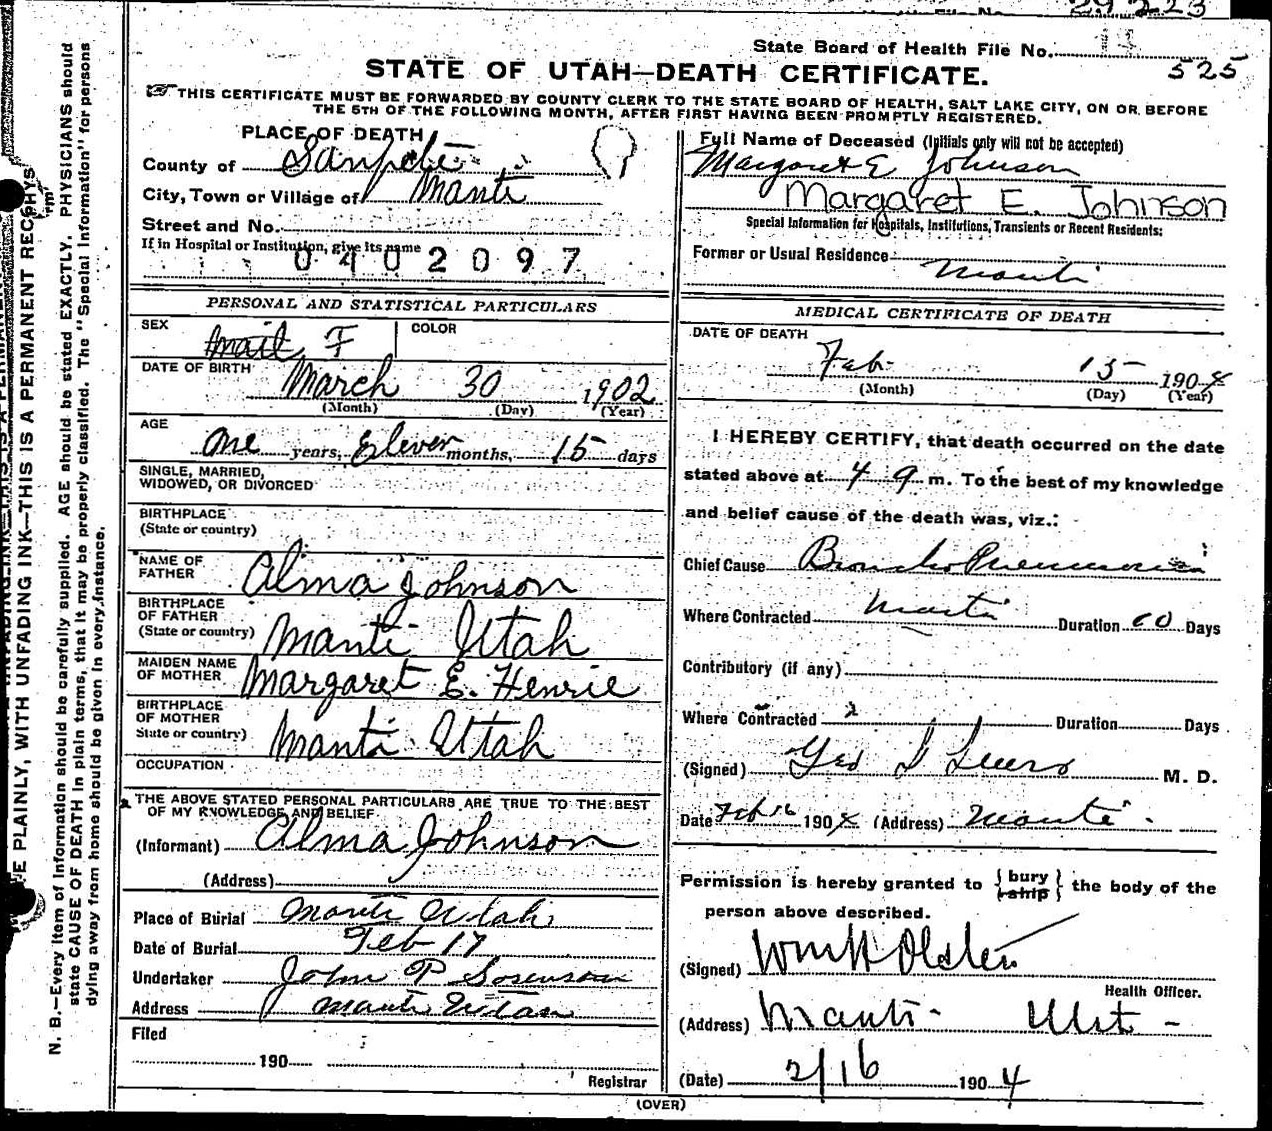 File No. 29 223
State Board of Health File No.
525
STATE OF UTAH—DEATH CERTIFICATE.
THIS CERTIFICATE MUST BE FORWARDED BY COUNTY CLERK TO THE STATE BOARD OF HEALTH, SALT LAKE CITY, ON OR BEFORE
THE 5TH OF THE FOLLOWING MONTH, AFTER FIRST HAVING BEEN PROMPTLY REGISTERED.
PLACE OF DEATH
County of Sanpete
City, Town or Village of Manti
Street and No.
If in Hospital or Institution, give its name
0402097
PERSONAL AND STATISTICAL PARTICULARS
SEX F COLOR
DATE OF BIRTH March 30 1902
(Month) (Day) (Year)
AGE
One years, Eleven months, 15 days
SINGLE, MARRIED,
WIDOWED, OR DIVORCED
BIRTHPLACE
(State or country)
NAME OF
FATHER Alma Johnson
BIRTHPLACE
OF FATHER
(State or country) Manti Utah
MAIDEN NAME
OF MOTHER Margaret E. Henrie
BIRTHPLACE
OF MOTHER
State or country) Manti Utah
OCCUPATION
THE ABOVE STATED PERSONAL PARTICULARS ARE TRUE TO THE BEST
OF MY KNOWLEDGE AND BELIEF
(Informant) Alma Johnson
(Address)
Place of Burial Manti Utah
Date of Burial Feb 17
Undertaker John P Sorenson
Address Manti Utah
Filed
190
Registrar
Full Name of Deceased (Initials only will not be accepted)
Margaret E Johnson
Margaret E. Johnson
Special Information for Hospitals, Institutions, Transients or Recent Residents:
Former or Usual Residence
Manti
MEDICAL CERTIFICATE OF DEATH
DATE OF DEATH
Feb 15 1904
(Month) (Day) (Year)
I HEREBY CERTIFY, that death occurred on the date
stated above at 4 9 m. To the best of my knowledge
and belief cause of the death was, viz.:
Chief Cause Broncho Pneumonia
Where Contracted Manti Duration Days
Contributory (if any)
Where Contracted Duration Days
(Signed) Geo M. D.
Date Feb 16 1904 (Address) Manti
Permission is hereby granted to { bury ship } the body of the
person above described.
(Signed)
Health Officer.
(Address) Manti
(Date) 2/16 1904
(OVER)
E PLAINLY, WITH UNFADING INK—THIS IS A PERMANENT RECORD
N. B.—Every item of Information should be carefully supplied. AGE should be stated EXACTLY. PHYSICIANS should
state CAUSE OF DEATH in plain terms, that it may be properly classified. The "Special Information" for persons
dying away from home should be given in every instance.